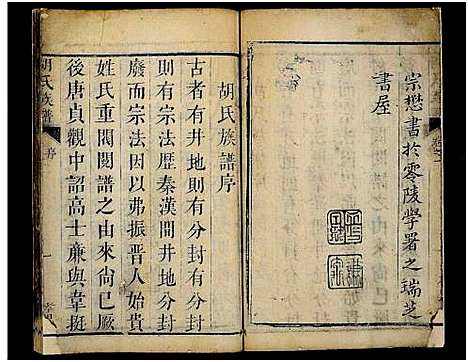 宗懋書於零陵學署之瑞芝
書屋
胡氏族譜序
古者有井地則有分封有分封
則有宗法歷秦漢開井地分封
廢而宗法因以弗振晉人始貴
姓氏重閥閱譜之由來尚已厥
後唐貞觀中詔高士廉與韋挺
胡氏族譜
序
一